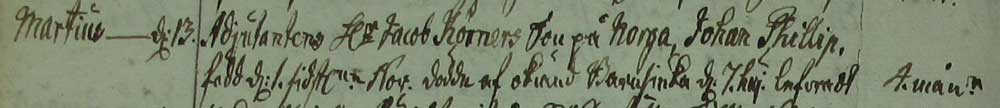 Martius — d: 13. Adjutantens Hr Jacob Körners Son på Norga, Johan Phillip,
född d: 1. sidstl: Nov. dödde af okänd Barnsiuka d: 7. huj. begrofs 4. mån:r